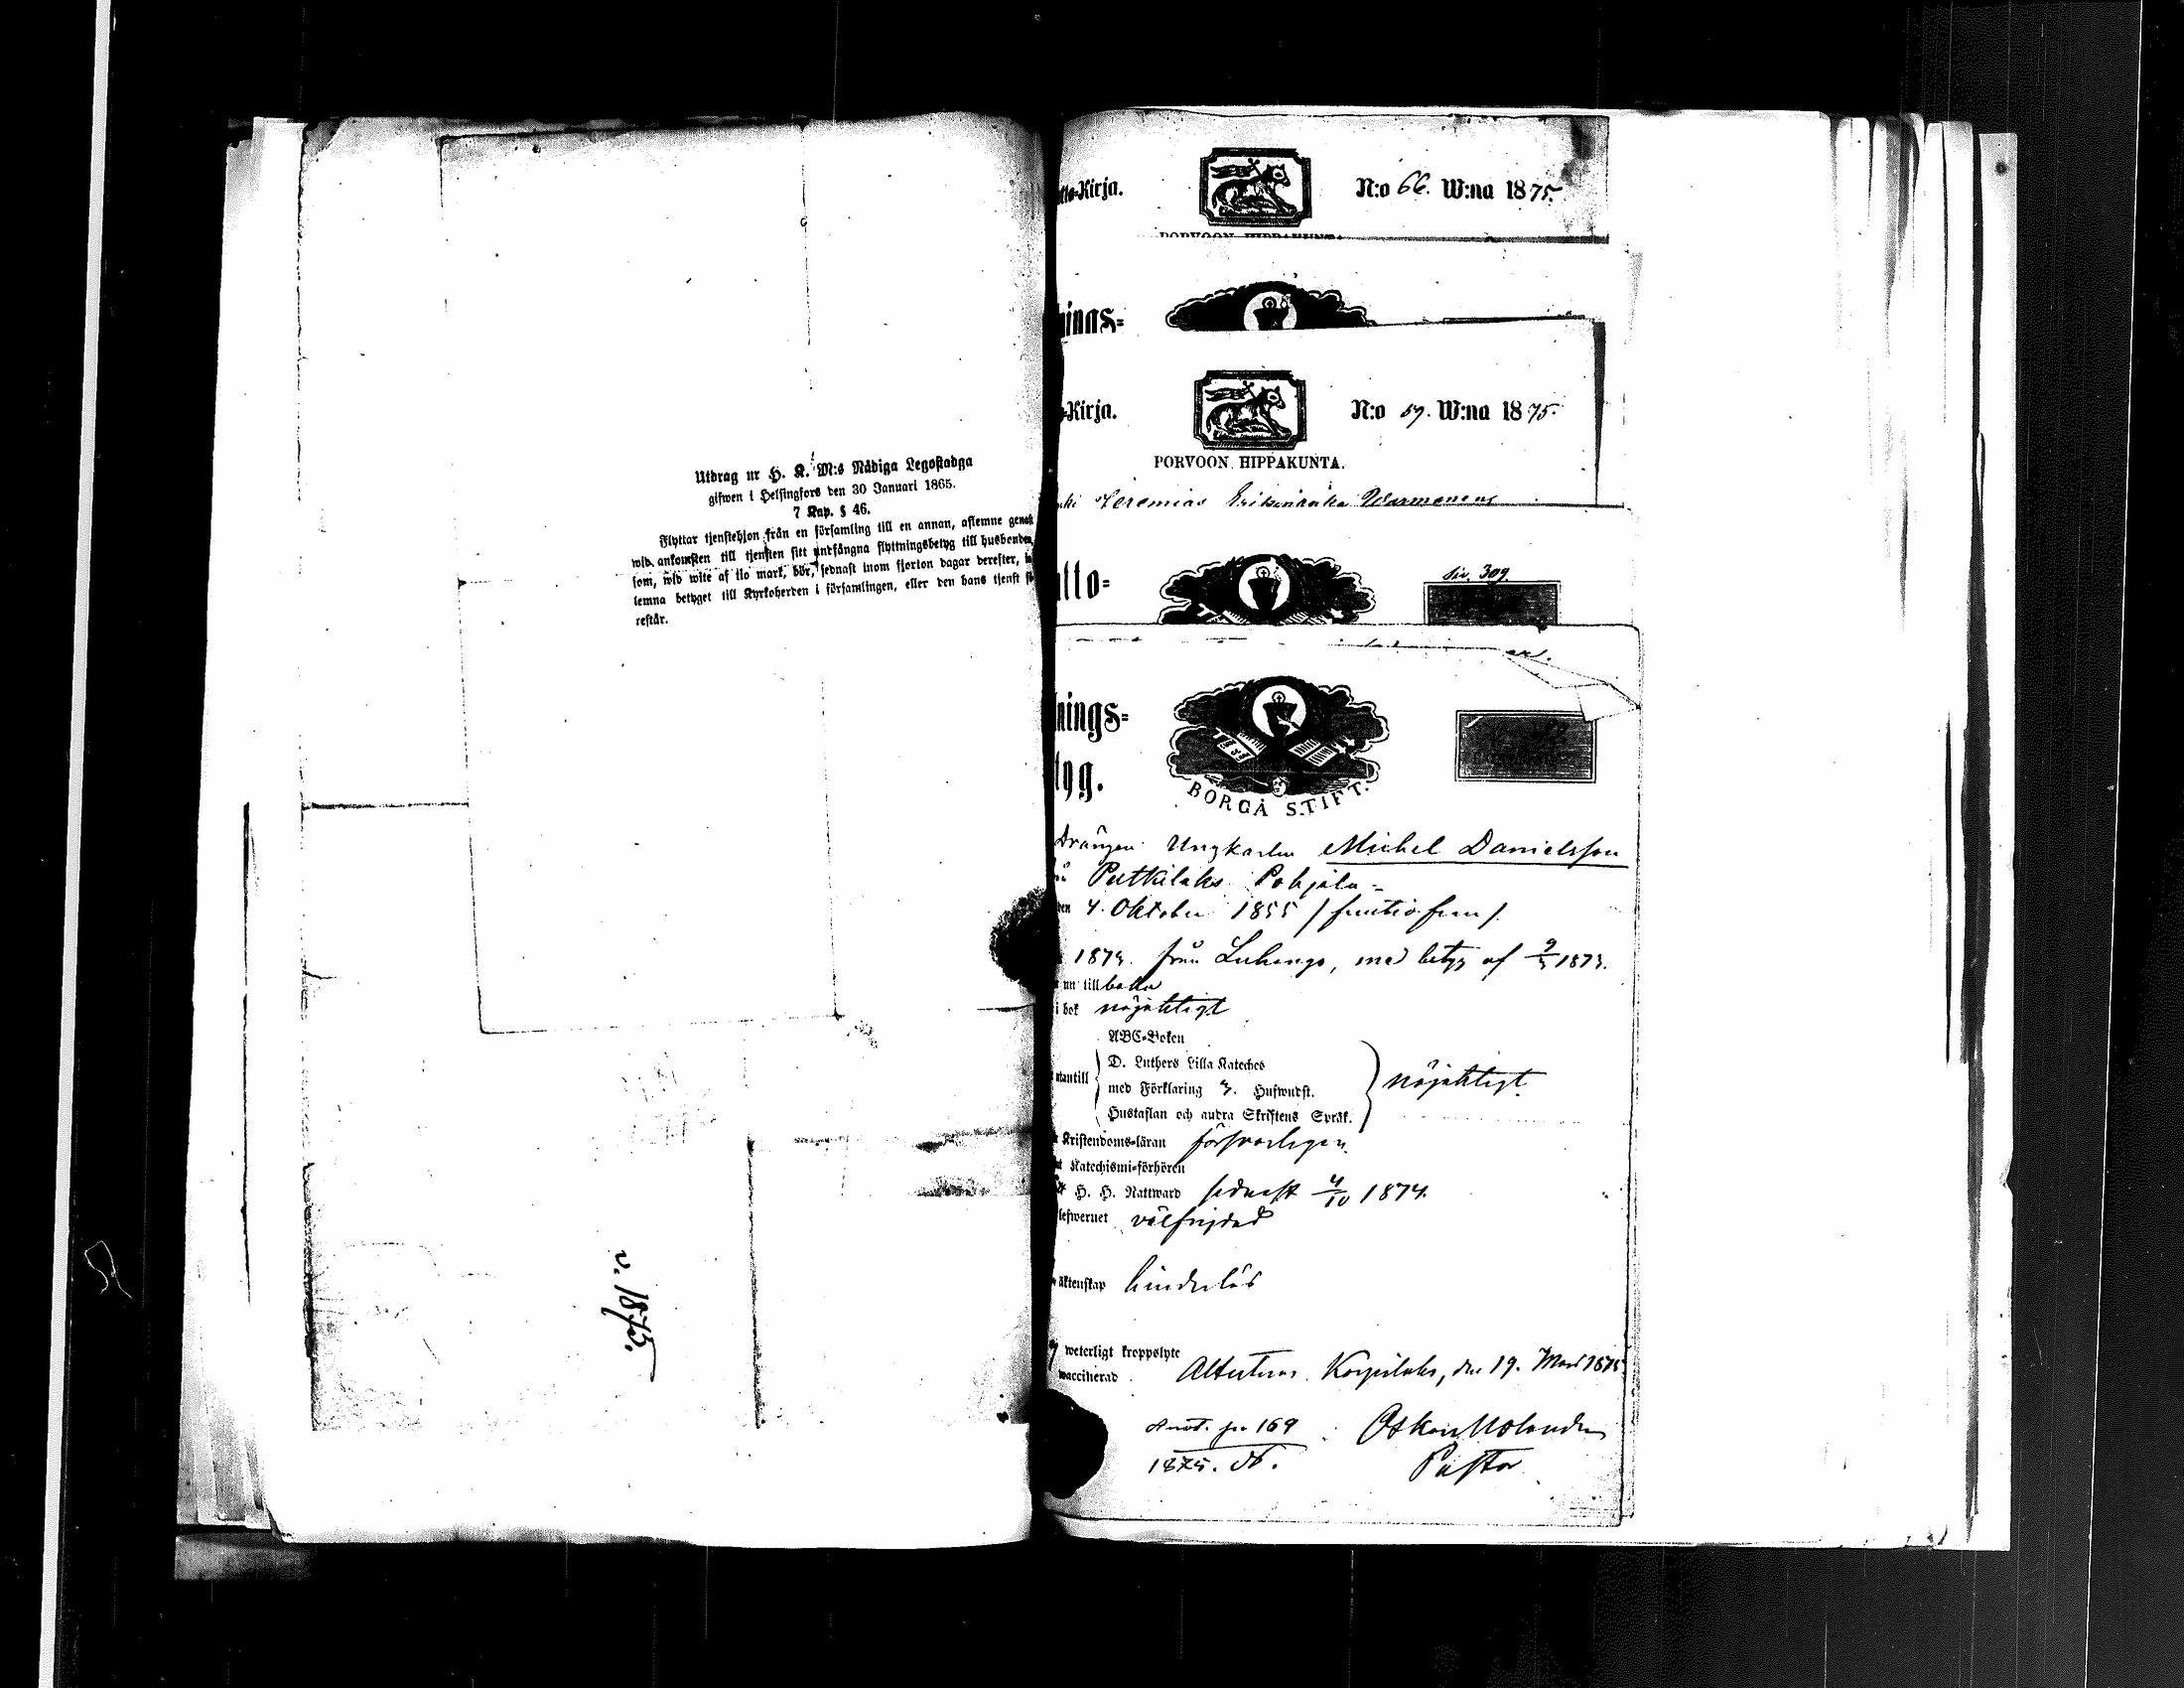 Utdrag ur H. K. M:s Nådiga Legostadga
gifwen i Helsingfors den 30 Januari 1865.
7 Kap. § 46.
Flyttar tjenstehjon från en församling till en annan, aflemne genast
wid ankomsten till tjensten sitt undfångna flyttningsbetyg till husbonden,
som, wid wite af tio mark, bör, sednast inom fjorton dagar derefter,
lemna betyget till Kyrkoherden i församlingen, eller den hans tjenst
restår.
v. 1875.
Kirja.
N:o 66. W:na 1875.
PORVOON HIPPAKUNTA
nings=
Kirja.
N:o 57. W:na 1875.
PORVOON HIPPAKUNTA.
Jeremias
tto=
Siv. 309
nings=
tyg.
BORGÅ STIFT.
Drängen Ungkarlen Michel Danielsson
Putkilaks Pohjala
den 4. Oktober 1855 / femtiofem /.
1874. från Luhango, med betyg af 1873.
nu tillbaka
i bok nöjaktigt
ABC-Boken
utantill
D. Luthers Lilla Kateches
med Förklaring 3. Hufwudst.
Hustaflan och andra Skriftens Språk.
nöjaktigt.
Kristendoms-läran försvarligen.
Katechismi-förhören
H. H. Nattward sednast 4/10 1874.
lefwernet välfrejdad
äktenskap hinderlös
weterligt kroppslyte
waccinerad
Attesteras. Korpilaks, den 19. Mars 1875
Anot. p. 169
1875.
Oskar Molander
Pastor